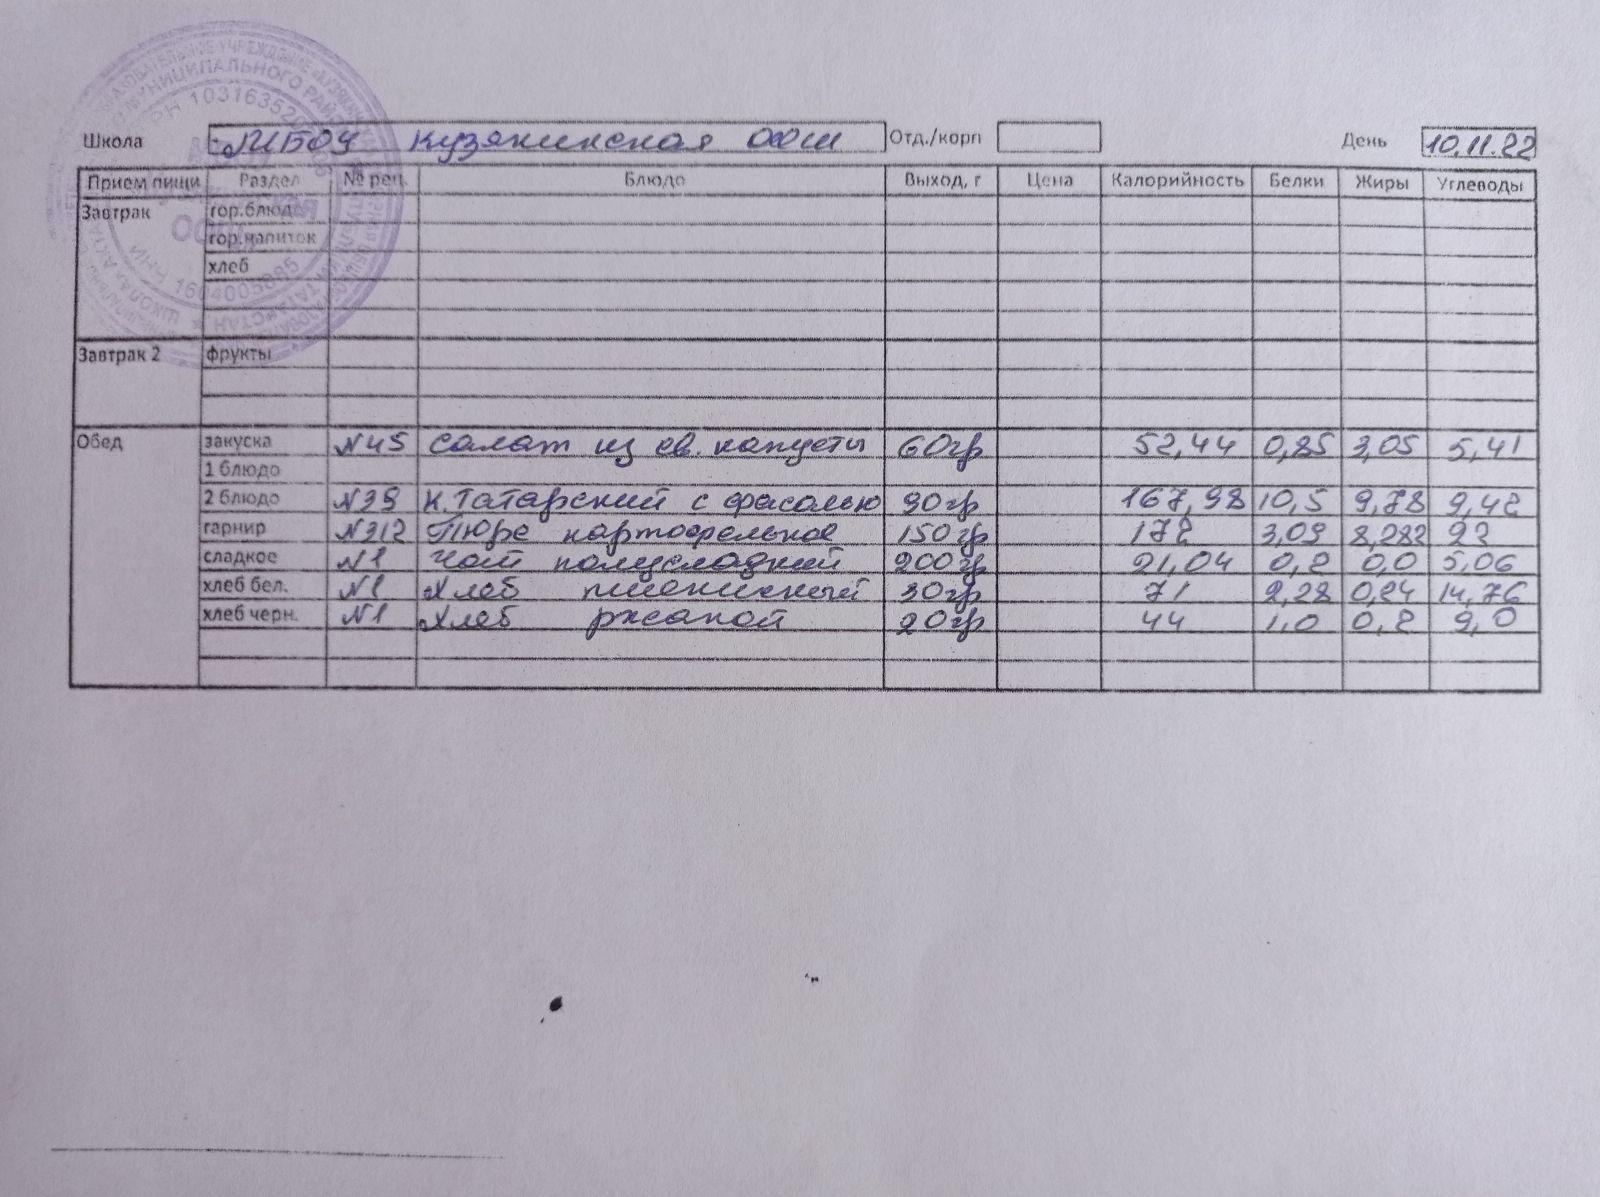 Школа МБОУ Кузякинская ООШ Отд./корп День 10.11.22
Прием пищи Раздел № рец. Блюдо Выход, г Цена Калорийность Белки Жиры Углеводы
Завтрак гор.блюдо
гор.напиток
хлеб
Завтрак 2 фрукты
Обед закуска №45 салат из св. капусты 60гр 52,44 0,85 3,05 5,41
1 блюдо
2 блюдо №39 К.Татарский с фасолью 90гр 167,98 10,5 9,78 9,42
гарнир №312 Пюре картофельное 150гр 172 3,09 22
сладкое №1 Чай полусладкий 200гр 21,04 0,2 0,0 5,06
хлеб бел. №1 Хлеб пшеничный 30гр 71 2,28 0,24 14,76
хлеб черн. №1 Хлеб ржаной 20гр 44 1,0 0,2 9,0